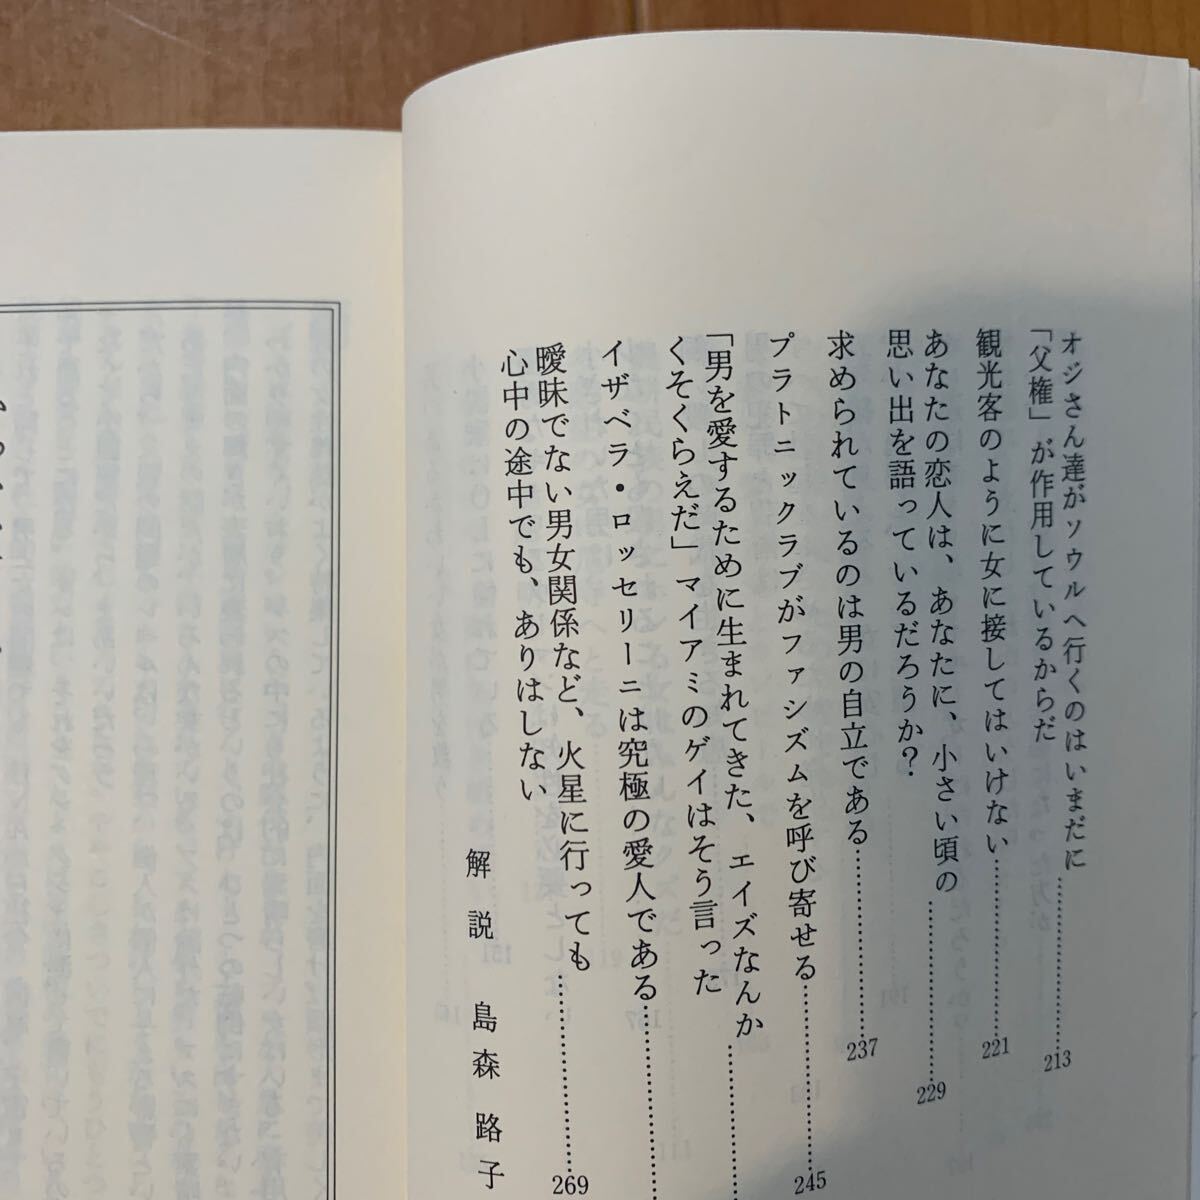 オジさん達がソウルへ行くのはいまだに
「父権」が作用しているからだ…………213
観光客のように女に接してはいけない…………221
あなたの恋人は、あなたに、小さい頃の
思い出を語っているだろうか？…………229
求められているのは男の自立である…………237
プラトニックラブがファシズムを呼び寄せる…………245
「男を愛するために生まれてきた、エイズなんか
くそくらえだ」マイアミのゲイはそう言った…………
イザベラ・ロッセリーニは究極の愛人である…………
曖昧でない男女関係など、火星に行っても
心中の途中でも、ありはしない…………269
解説　島森路子